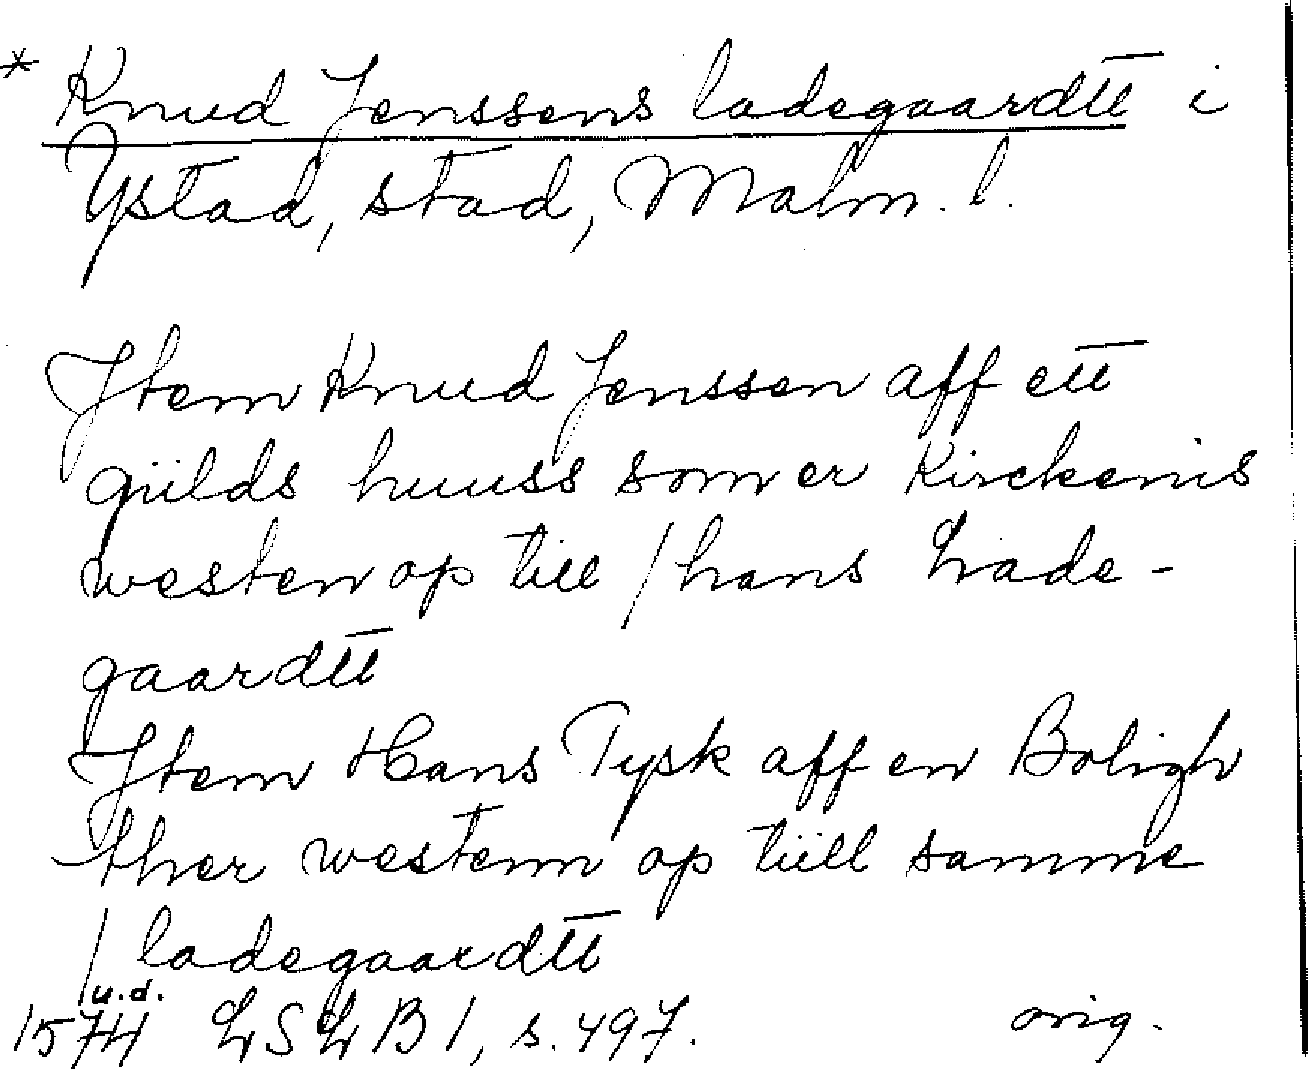 * Knud Jenssens ladegaardtt i
Ystad, stad, Malm. l.
Item Knud Jenssen aff ett
giilds huuss som er Kirckenis
westen op till / hans Lade-
gaardtt
Item Hans Tysk aff en Boligh
ther westenn op tiill samme
/ ladegaardtt
u.d.
1574 LSLB 1, s. 497. orig.